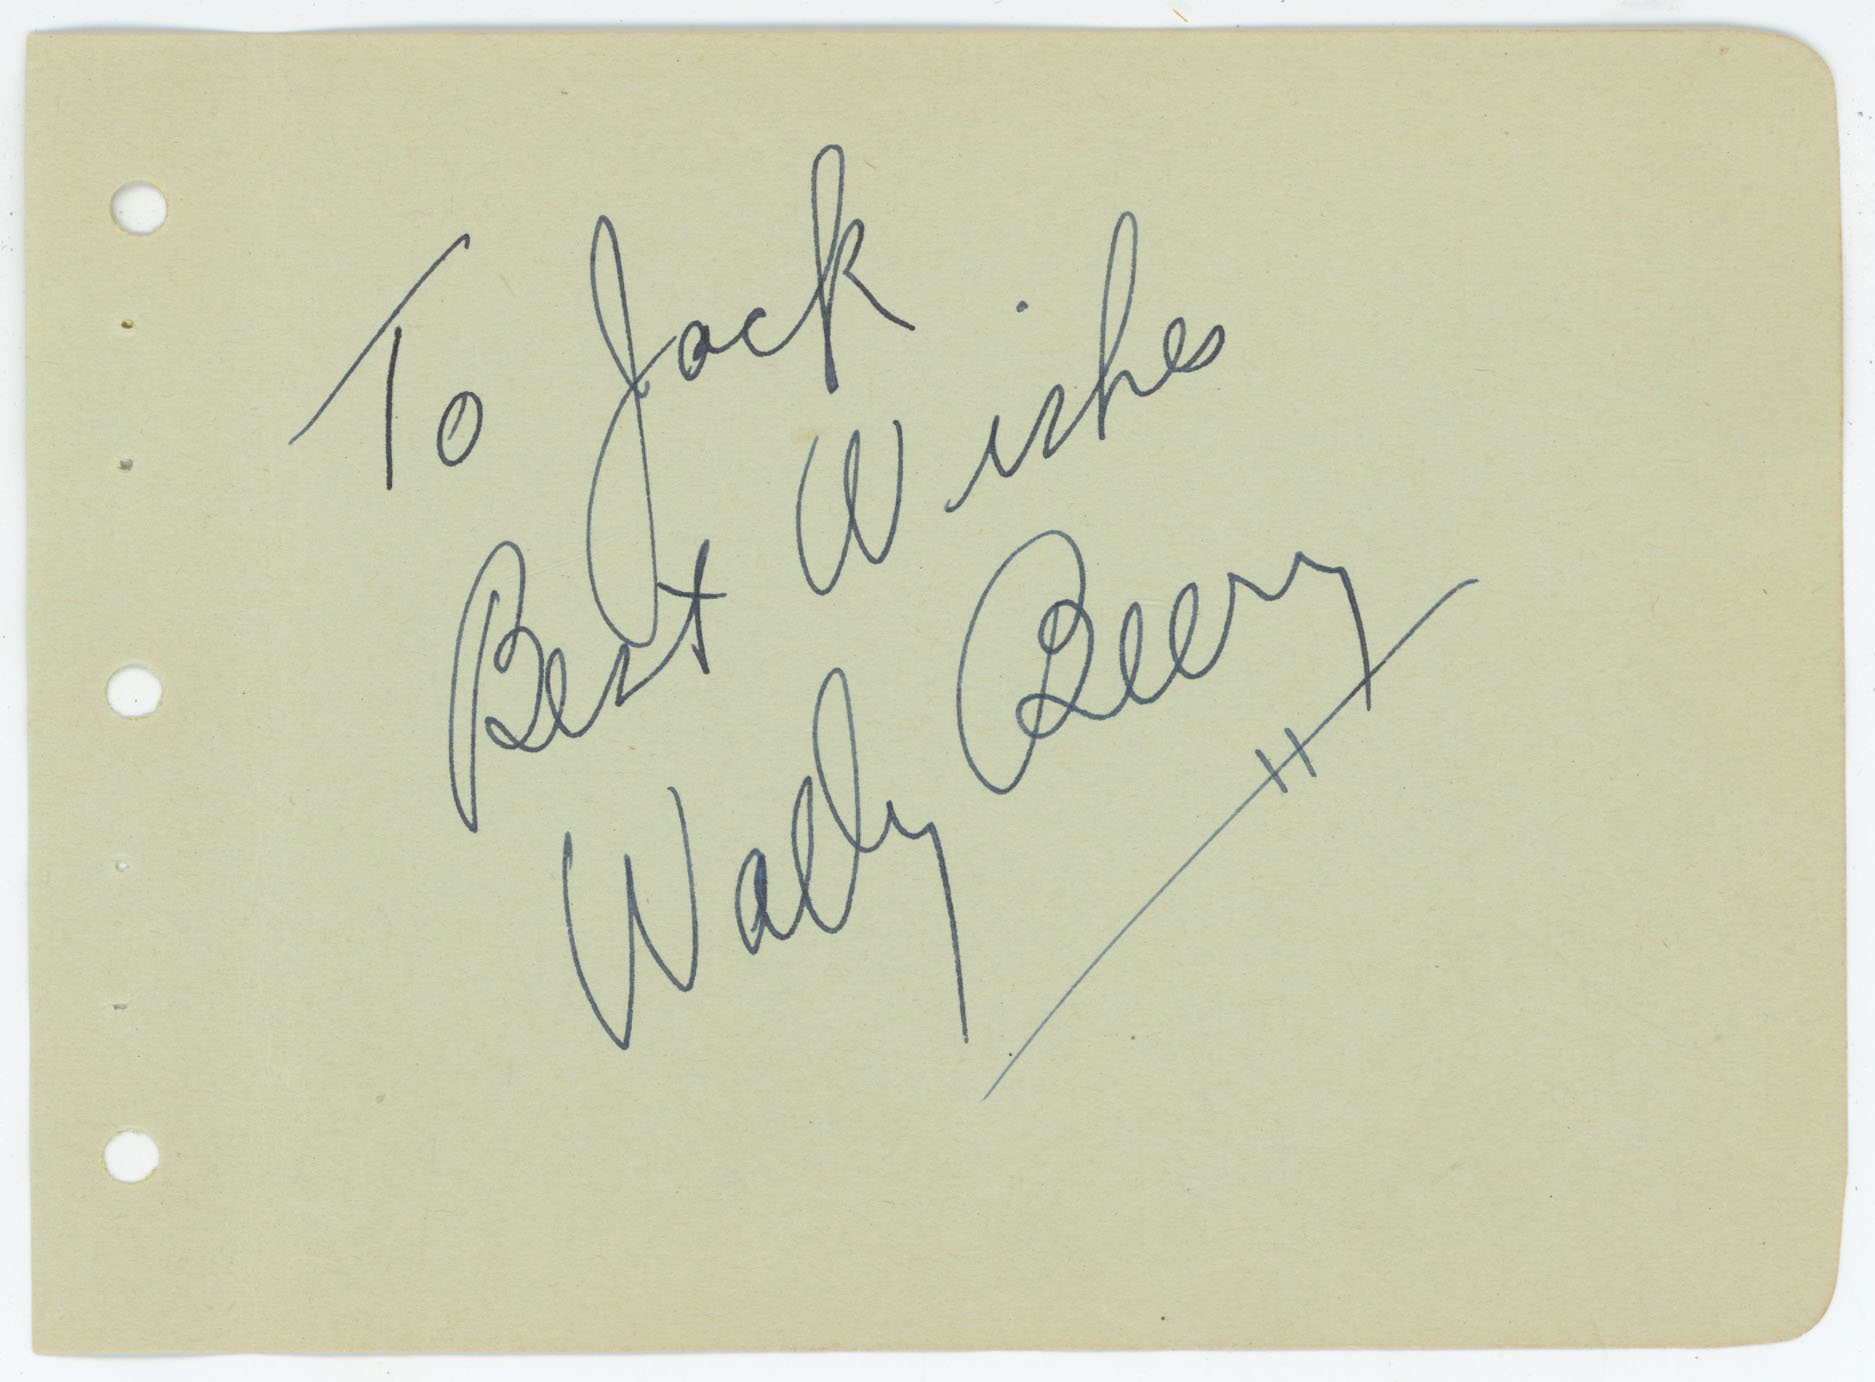 To Jack
Best Wishes
Wally Beery